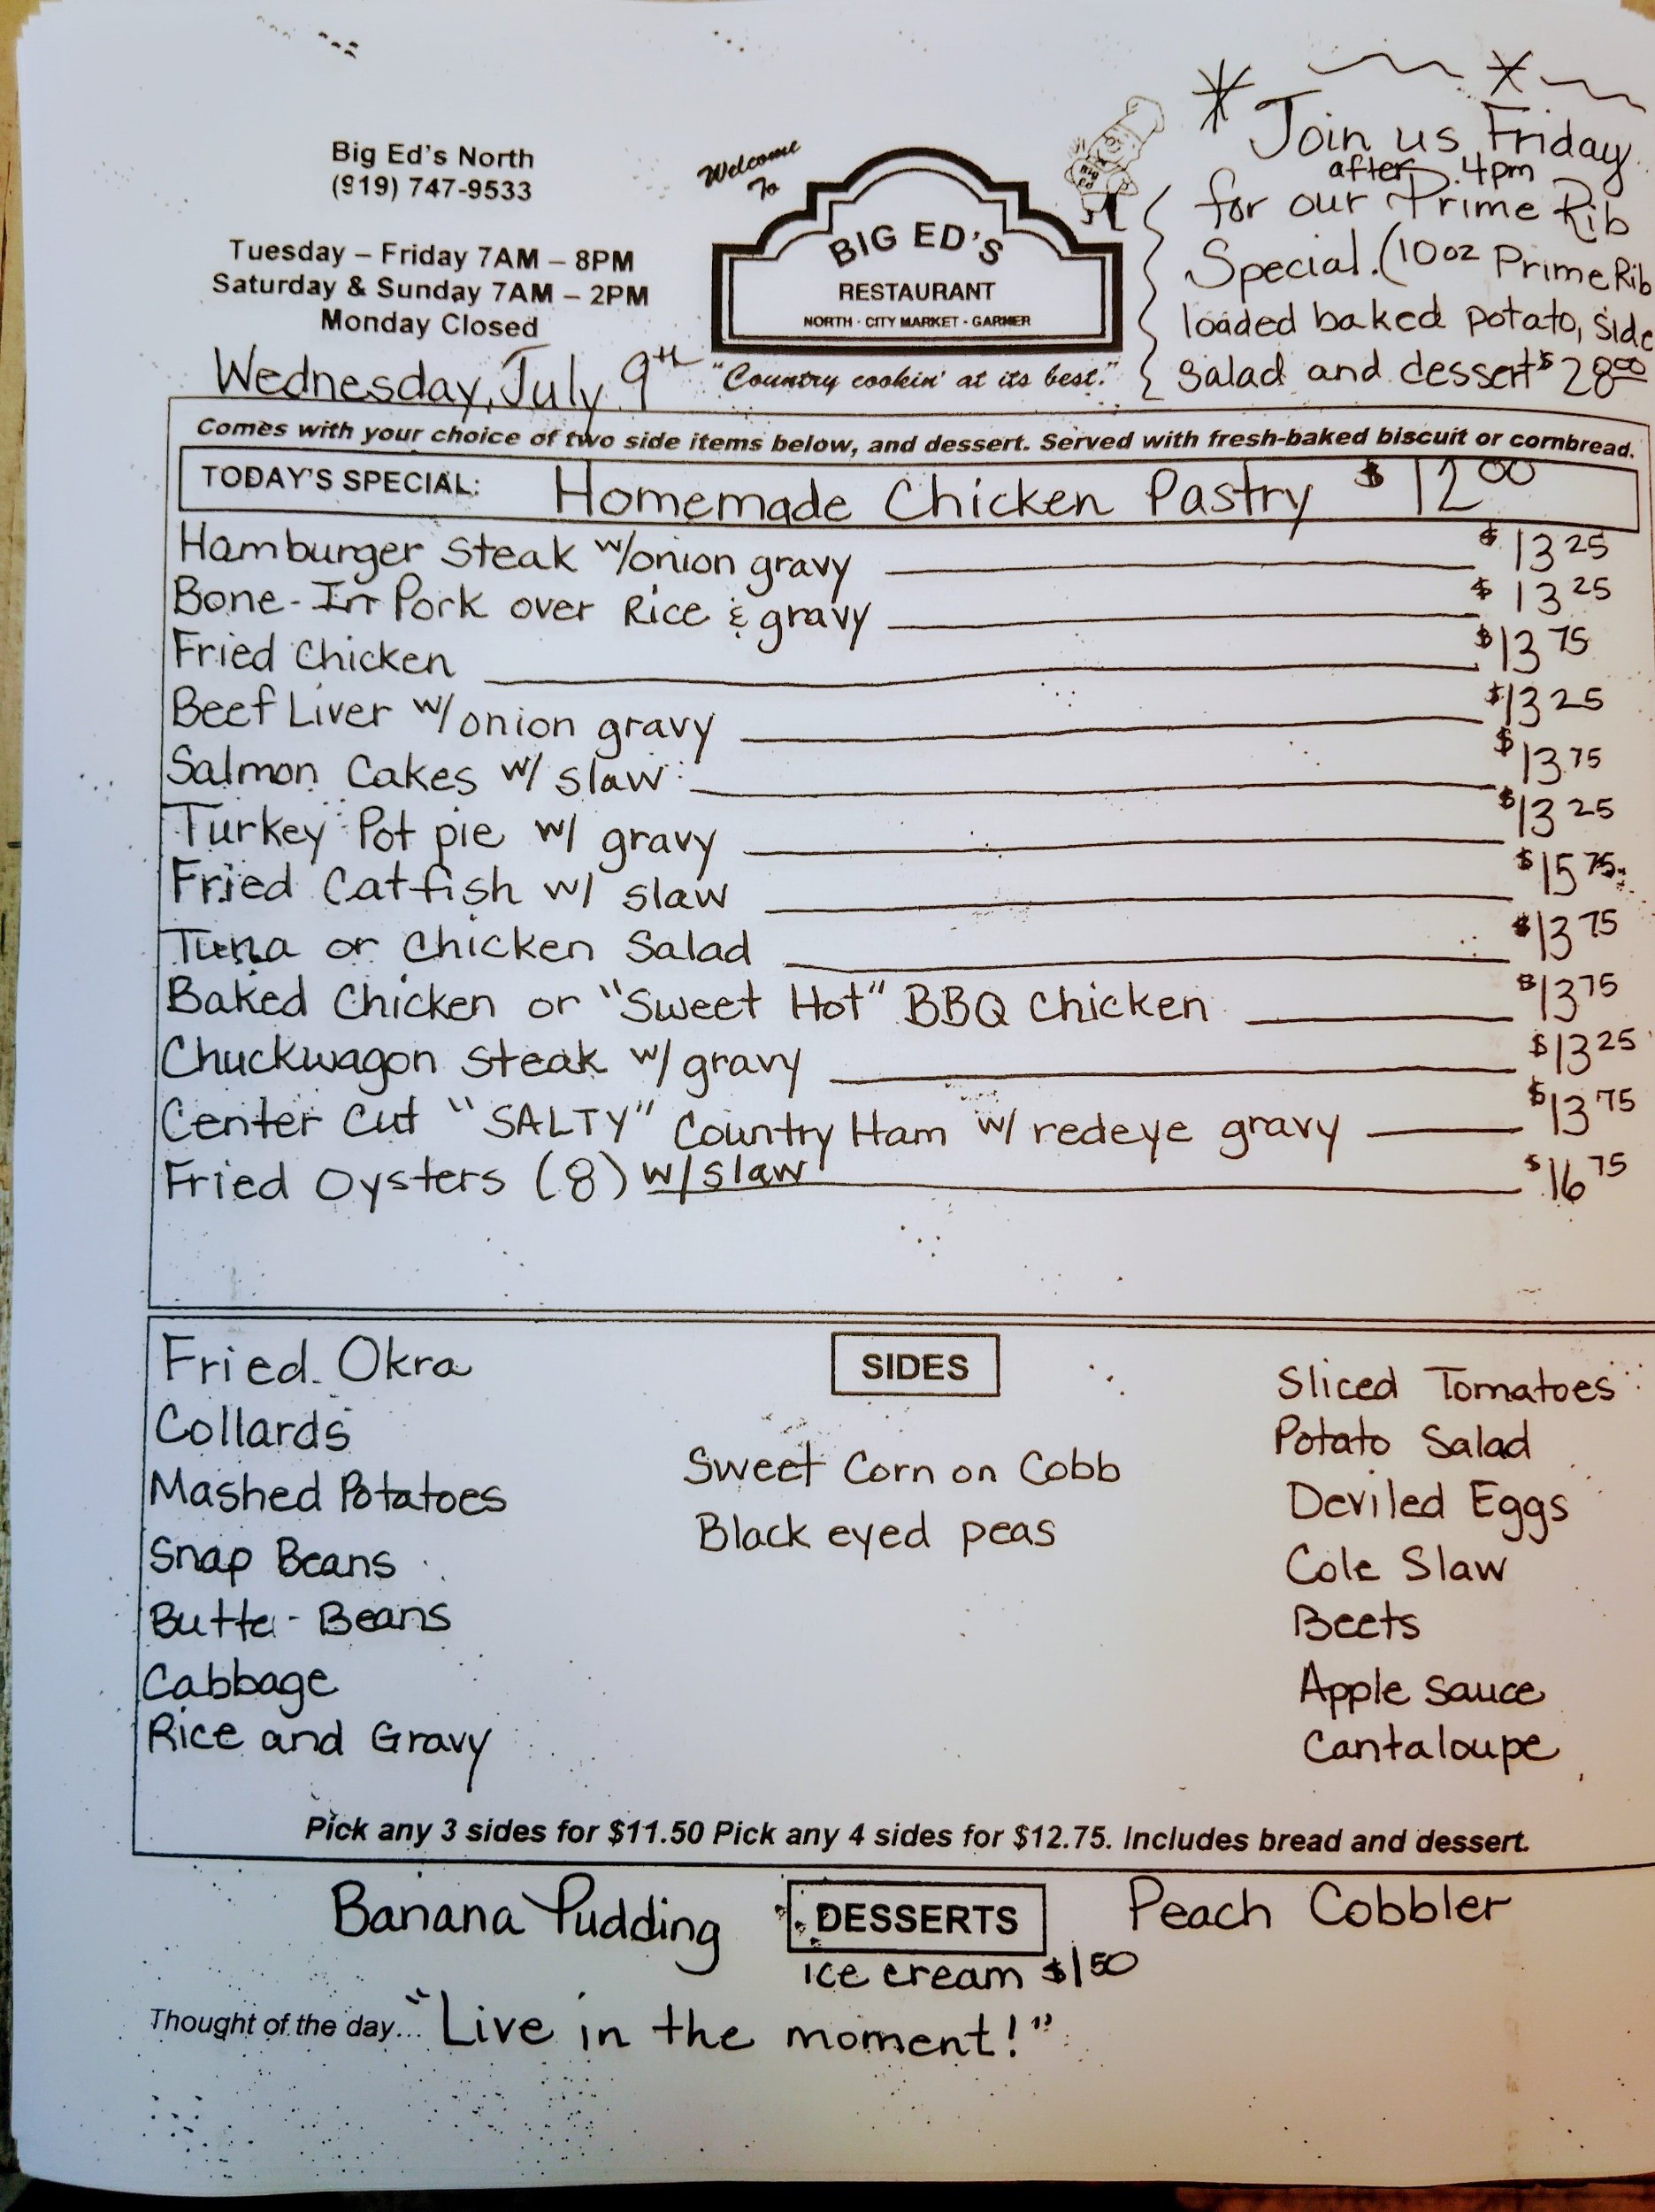 Big Ed's North
(919) 747-9533
Tuesday – Friday 7AM – 8PM
Saturday & Sunday 7AM – 2PM
Monday Closed
Wednesday, July 9th
Welcome
To
BIG ED'S
RESTAURANT
NORTH · CITY MARKET · GARNER
"Country cookin' at its best."
Big
Ed
Join us Friday
after 4pm
for our Prime Rib
Special. (10oz Prime Rib
loaded baked potato, side
salad and dessert $28.00
Comes with your choice of two side items below, and dessert. Served with fresh-baked biscuit or cornbread.
TODAY'S SPECIAL: Homemade Chicken Pastry $12.00
Hamburger Steak w/onion gravy $13.25
Bone-In Pork over Rice & gravy $13.25
Fried Chicken $13.75
Beef Liver w/onion gravy $13.25
Salmon Cakes w/ slaw $13.75
Turkey Pot pie w/ gravy $13.25
Fried Catfish w/ slaw $15.75
Tuna or Chicken Salad $13.75
Baked Chicken or "Sweet Hot" BBQ Chicken $13.75
Chuckwagon Steak w/ gravy $13.25
Center Cut "SALTY" Country Ham w/ redeye gravy $13.75
Fried Oysters (8) w/slaw $16.75
SIDES
Fried Okra
Collards
Mashed Potatoes
Snap Beans
Butter Beans
Cabbage
Rice and Gravy
Sweet Corn on Cobb
Black eyed peas
Sliced Tomatoes
Potato Salad
Deviled Eggs
Cole Slaw
Beets
Apple Sauce
Cantaloupe
Pick any 3 sides for $11.50 Pick any 4 sides for $12.75. Includes bread and dessert.
Banana Pudding DESSERTS Peach Cobbler
ice cream $1.50
Thought of the day... "Live in the moment!"